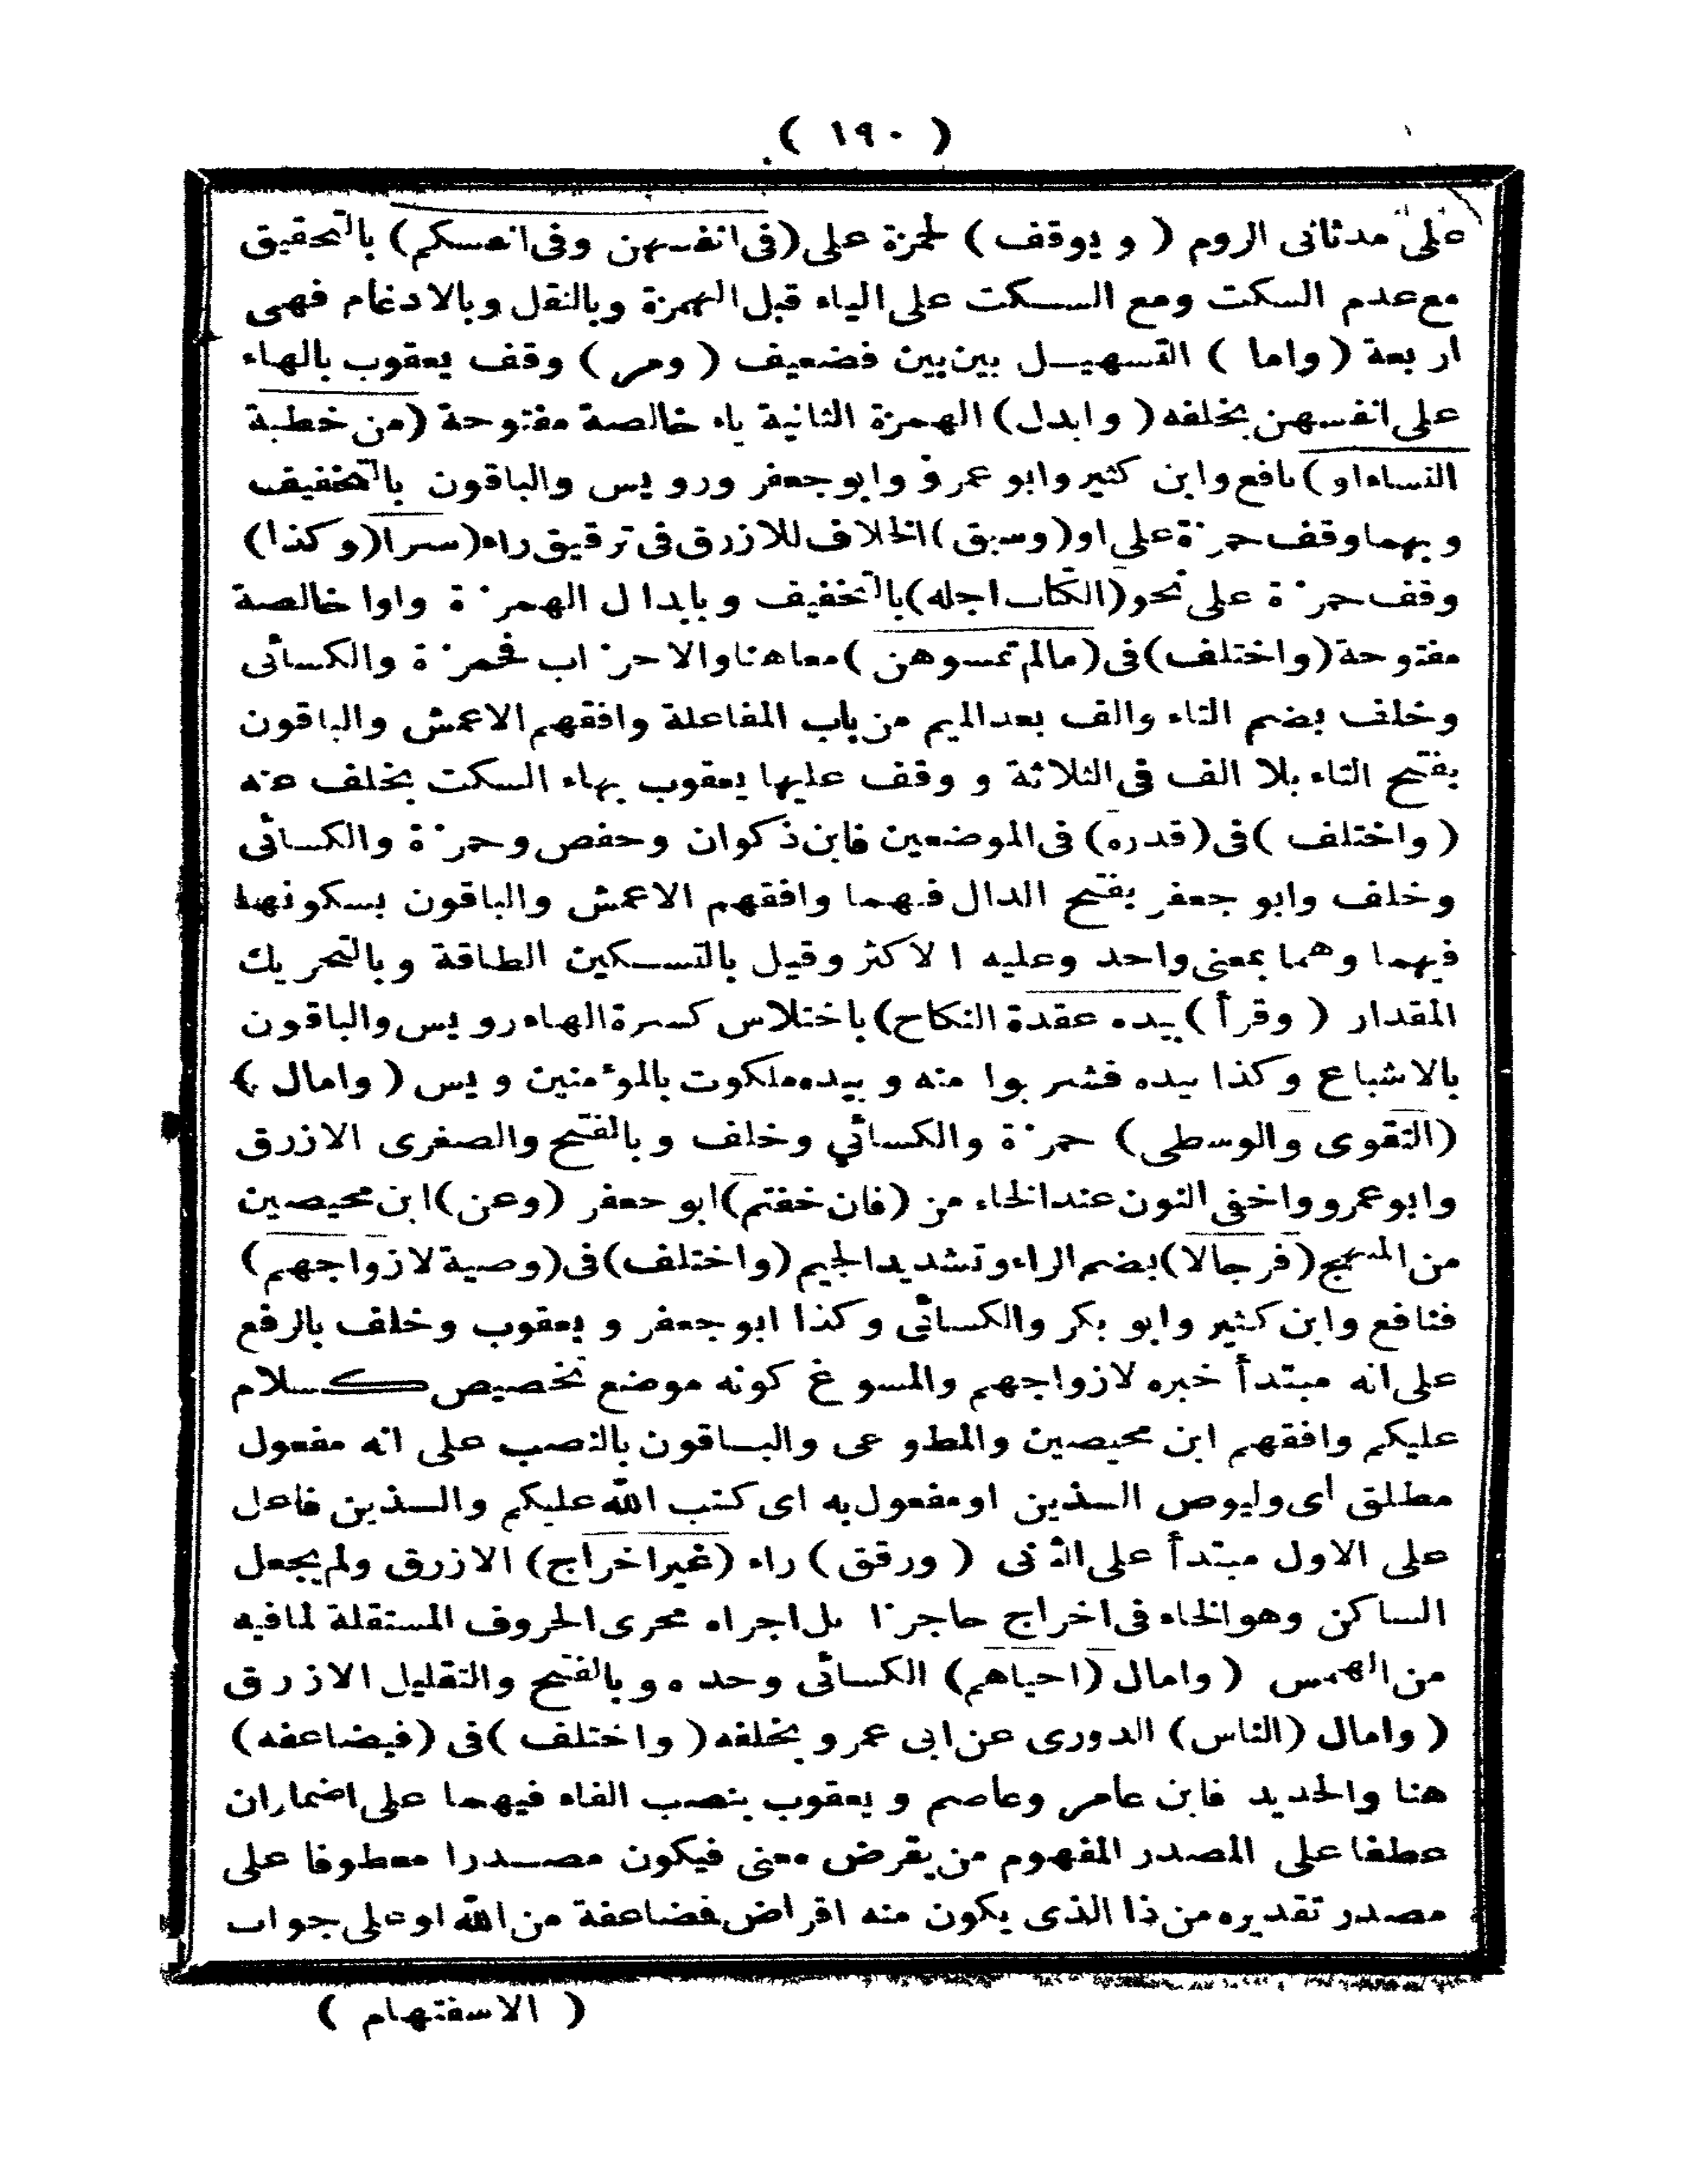 ( ١٩٠ )
على مد ثانى الروم ( و يوقف ) لحمزة على (فى انفسهن وفى انفسكم) بالتحقيق
مع عدم السكت ومع السكت على الياء قبل الهمزة وبالنقل وبالادغام فهى
اربعة (واما ) التسهيل بين بين فضعيف ( ومر ) وقف يعقوب بالهاء
على انفسهن بخلفه ( وابدل) الهمزة الثانية ياء خالصة مفتوحة (من خطبة
النساء او ) نافع وابن كثير وابو عمرو وابو جعفر ورويس والباقون بالتخفيف
وبهما وقف حمزة على او (وسبق ) الخلاف للازرق فى ترقيق راء (سرا (وكذا)
وقف حمزة على نحو (الكتاب اجله) بالتخفيف وبابدال الهمزة واوا خالصة
مفتوحة (واختلف) فى (مالم تمسوهن ) معا هنا والاحزاب فحمزة والكسائى
وخلف بضم التاء والف بعد الميم من باب المفاعلة وافقهم الاعمش والباقون
بفتح التاء بلا الف فى الثلاثة و وقف عليها يعقوب بهاء السكت بخلف عنه
( واختلف ) فى (قدره) فى الموضعين فابن ذكوان وحفص وحمزة والكسائى
وخلف وابو جعفر بفتح الدال فيهما وافقهم الاعمش والباقون بسكونها
فيهما وهما بمعنى واحد وعليه الاكثر وقيل بالتسكين الطاقة وبالتحريك
المقدار ( وقرأ ) بيده عقدة النكاح) باختلاس كسرة الهاء رويس والباقون
بالاشباع وكذا بيده فشربوا منه وبيده ملكوت بالمؤمنين ويس ( وامال )
(التقوى والوسطى) حمزة والكسائي وخلف وبالفتح والصغرى الازرق
وابو عمرو واخفى النون عند الخاء من (فان خفتم) ابو جعفر (وعن) ابن محيصين
من المبهج (فرجالا) بضم الراء وتشديد الجيم (واختلف) فى (وصية لازواجهم)
فنافع وابن كثير وابو بكر والكسائى وكذا ابو جعفر و يعقوب وخلف بالرفع
على انه مبتدأ خبره لازواجهم والمسوغ كونه موضع تخصيص كسلام
عليكم وافقهم ابن محيصين والمطوعى والباقون بالنصب على انه مفعول
مطلق اى وليوص الذين او مفعول به اى كتب الله عليكم والذين فاعل
على الاول مبتدأ على الثانى ( ورقق ) راء (غير اخراج) الازرق ولم يجعل
الساكن وهو الخاء فى اخراج حاجزا بل اجراه مجرى الحروف المستقلة لما فيه
من الهمس ( وامال (احياهم) الكسائى وحده و بالفتح والتقليل الازرق
( وامال (الناس) الدورى عن ابى عمرو بخلفه ( واختلف ) فى (فيضاعفه)
هنا والحديد فابن عامر وعاصم و يعقوب بنصب الفاء فيهما على اضمار ان
عطفا على المصدر المفهوم من يقرض معنى فيكون مصدرا معطوفا على
مصدر تقديره من ذا الذى يكون منه اقراض فضاعفة من الله او على جواب
( الاستفهام )